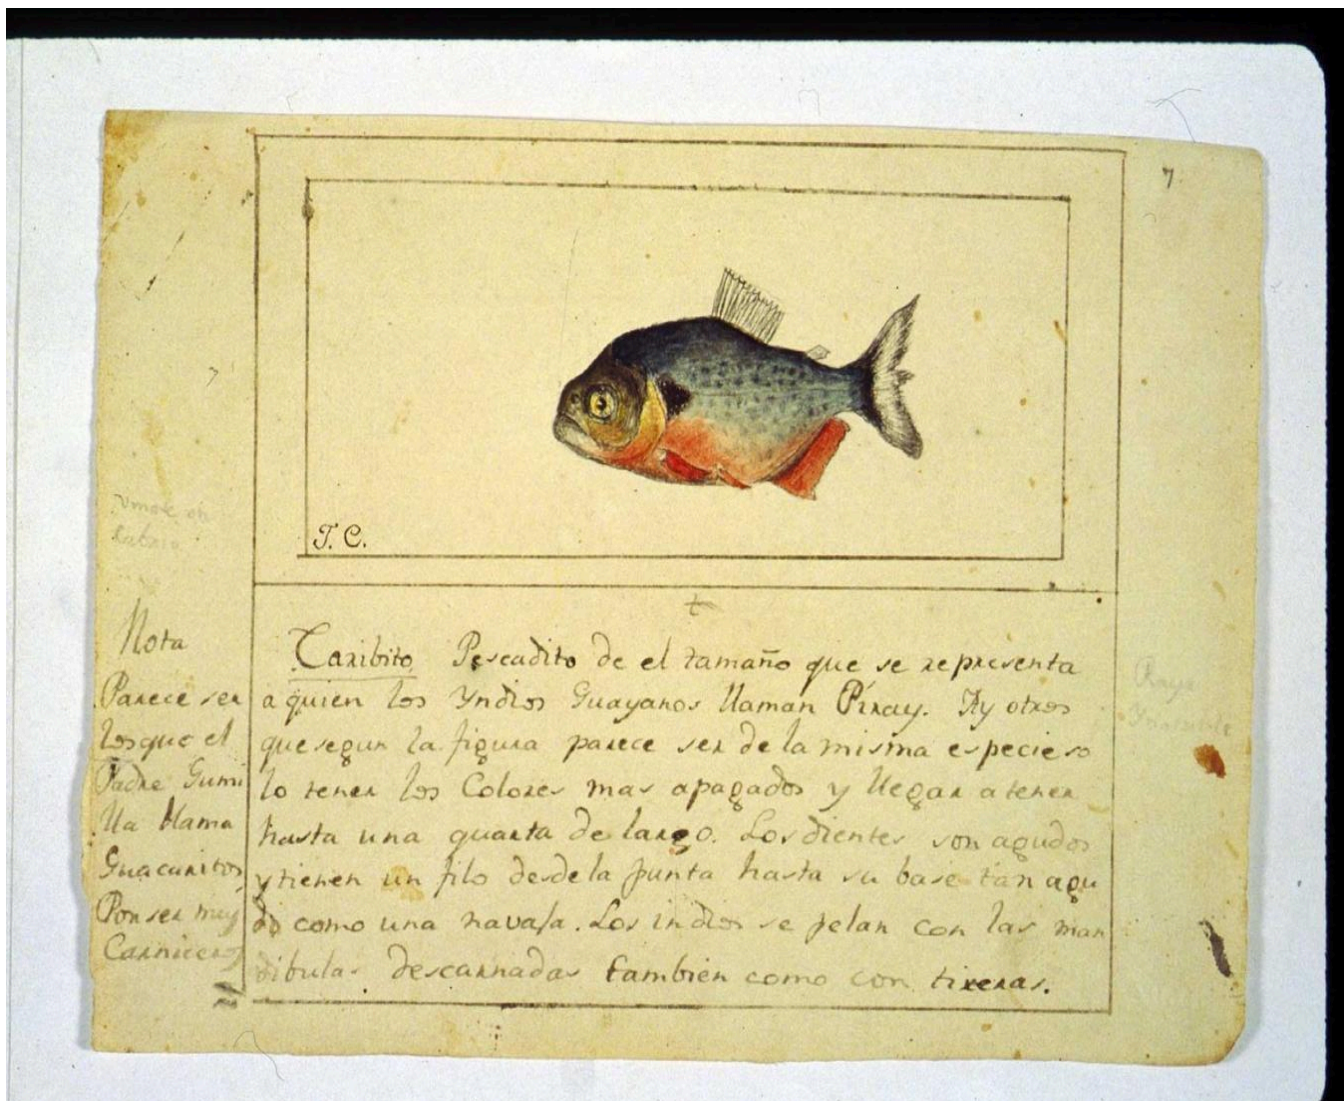 7
J. C.
Nota
Parece ser
los que el
Padre Gumi
lla llama
Guacaritos
Por ser muy
Carniceros
Caribito Pescadito de el tamaño que se representa
a quien los Yndios Guayanos llaman Piray. Ay otros
que segun la figura parece ser de la misma especie so
lo tener los Colores mas apagados y llegar a tener
hasta una quarta de largo. Los dientes son agudos
y tienen un filo desde la punta hasta su base tan agu
do como una navaja. Los indios se pelan con las man
dibulas descarnadas tambien como con tixeras.
Raya